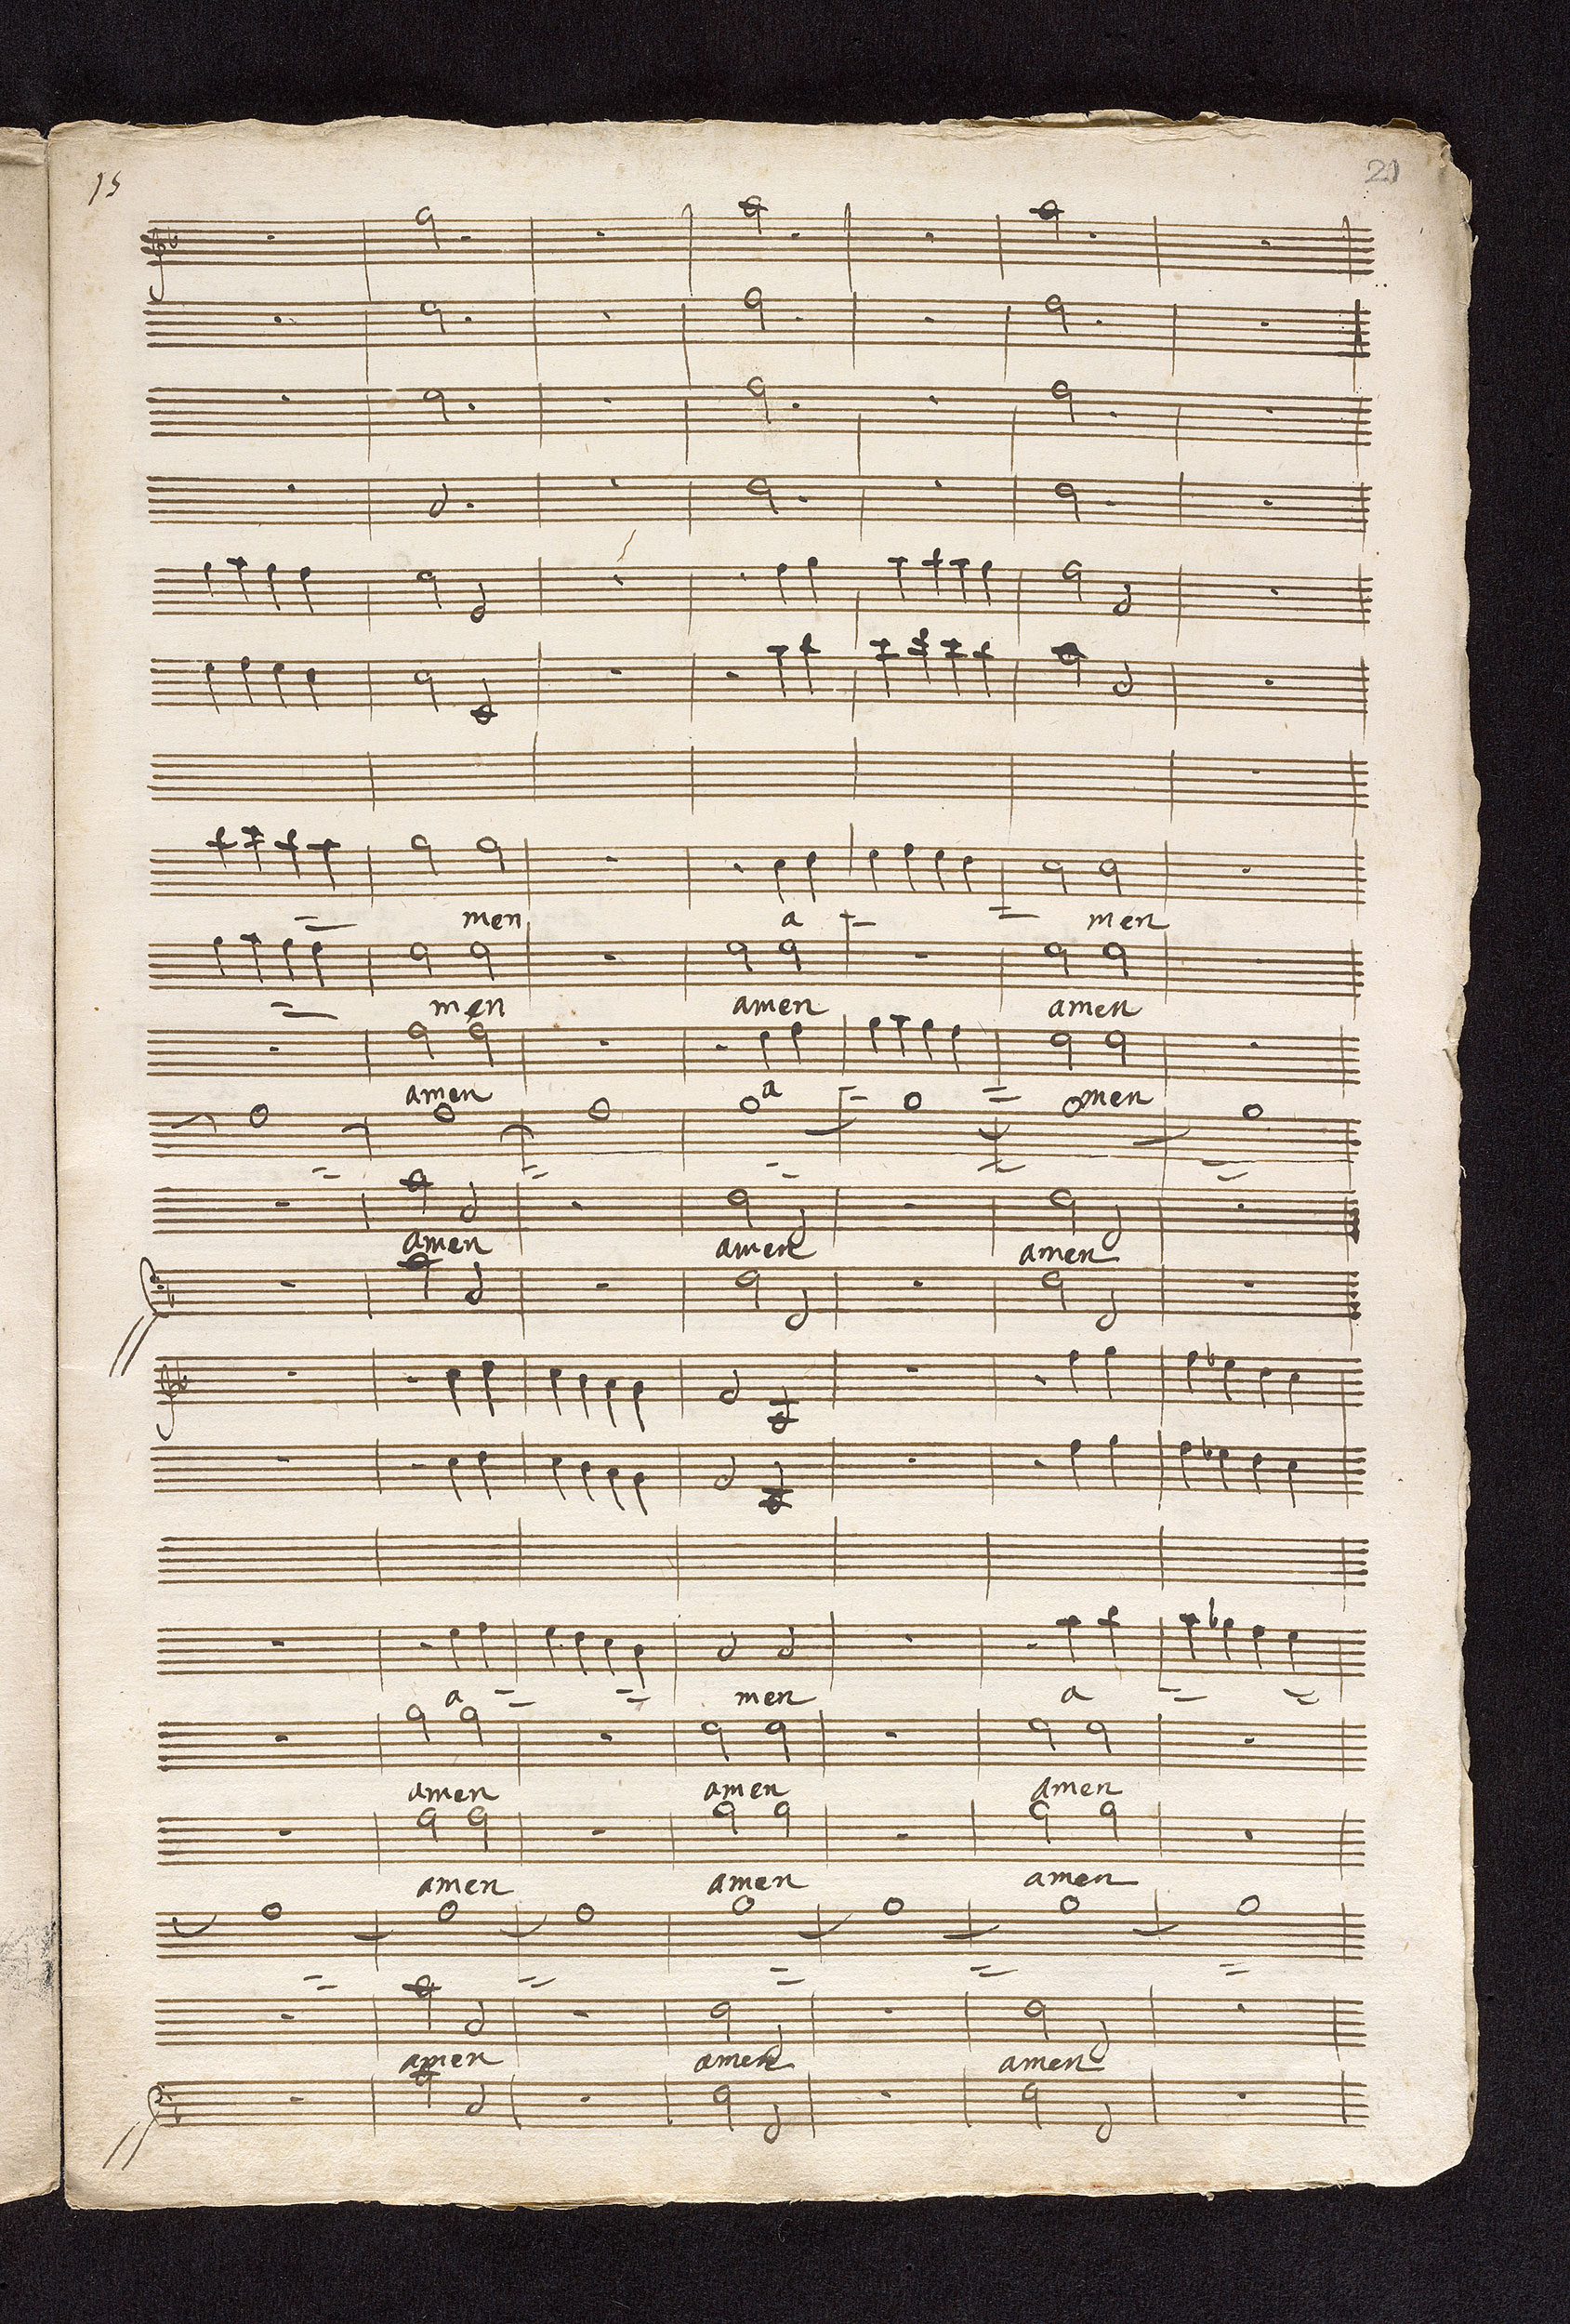 15
21
men a men
men amen amen
amen a men
amen amen amen
a men a
amen amen amen
amen amen amen
amen amen amen